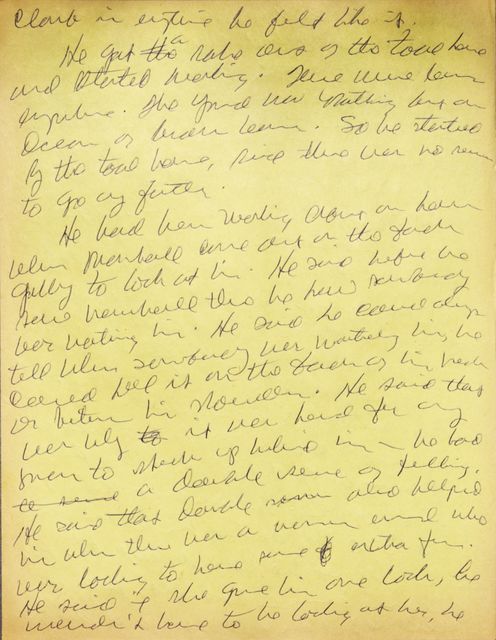 Clark in anytime he felt like it.
He got a rake out of the tool house
and started working. There were leaves
anywhere. The yard was nothing but an
ocean of brown leaves. So he started
by the tool house, since there was no reason
to go any further.
He had been working along an hour
when Marshall came out on the back
to look at him. He said before he
saw Marshall that he knew somebody
was watching him. He said he could always
tell when somebody was watching him, he
could feel it on the back of his neck
or between his shoulders. He said that
was why it was hard for any
man to sneak up behind him - he had
a double sense of feeling.
He said that double also helped
him when there was a woman around who
was looking to have some extra fun.
He said if she gave him one look, he
wouldn't have to be looking at her, he